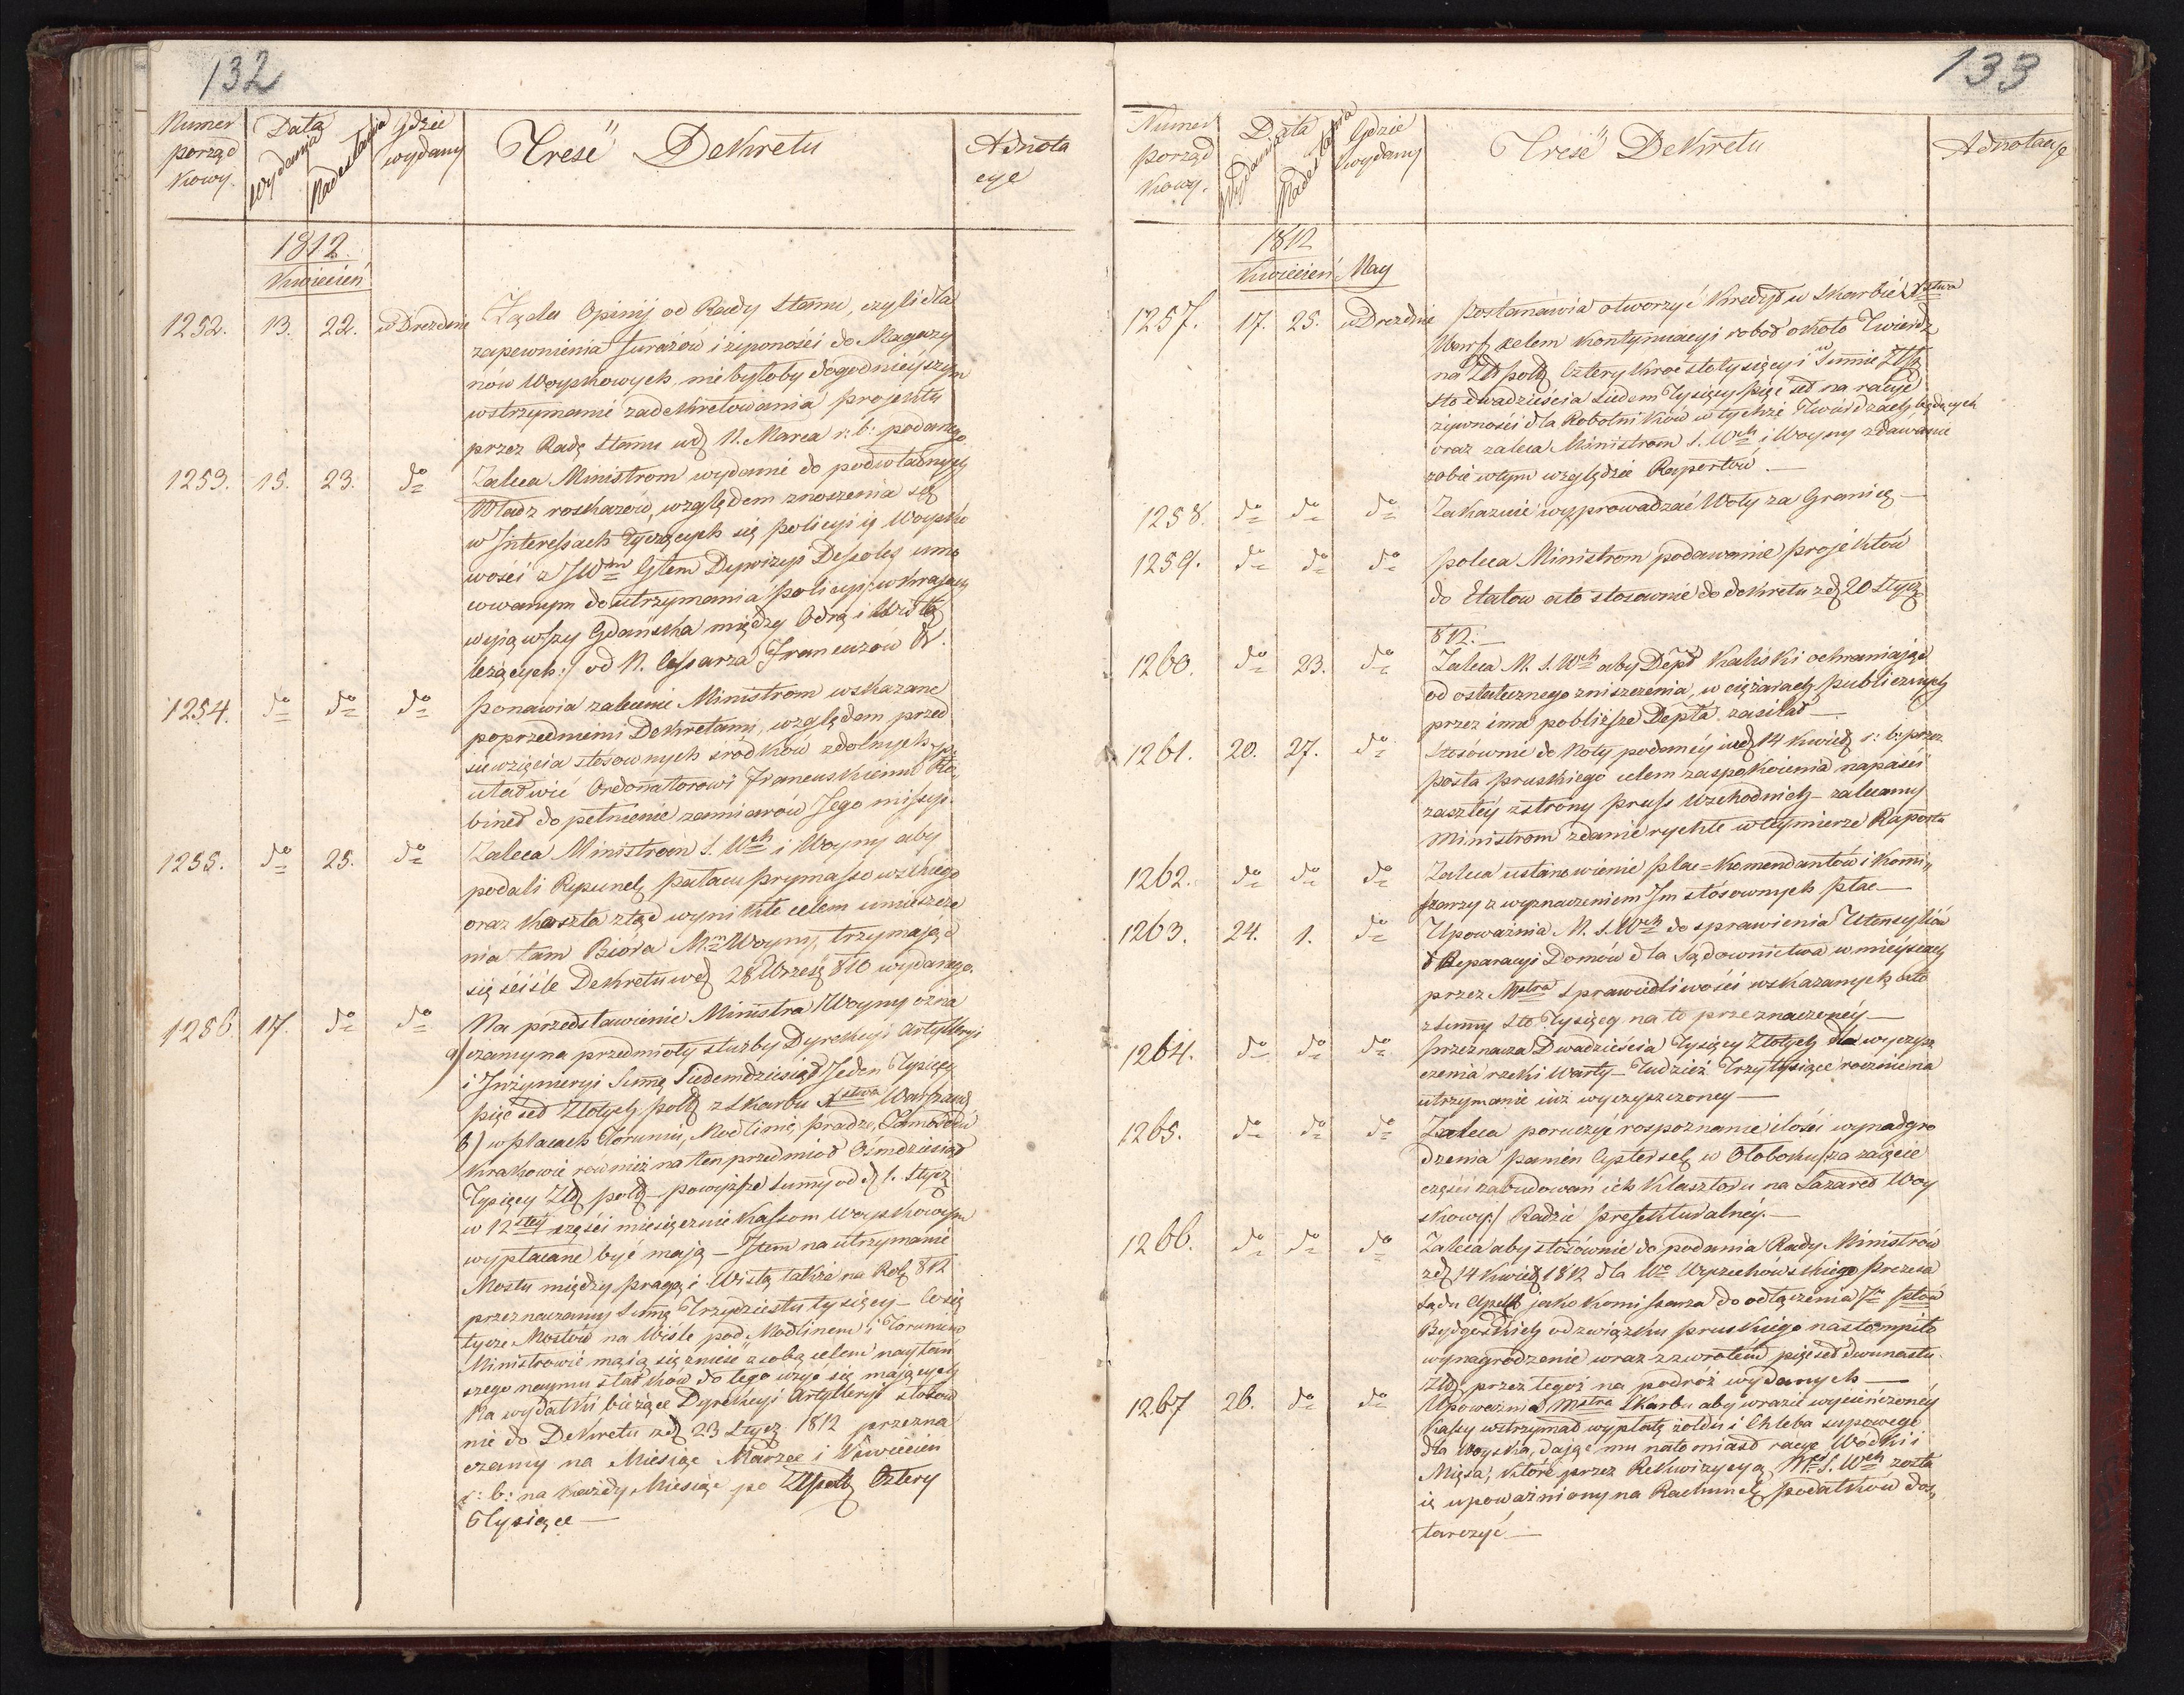 132
Numer porząd kowy.
Data
wydania
Nadesłania
Gdzie wydany
Treść Dekretu
Adnota cye
1812.
Kwiecień
1252. 13. 22. w Dreznie Żąda Opinij od Rady Stanu, czyli dla
zapewnienia furażów i żywności do Magazy
nów Woyskowych, nie byłoby dogodnieyszym
wstrzymanie zadekretowania projektu
przez Radę Stanu wd. 11. Marca r: b: podanego.
1253. 15. 23. do Zaleca Ministrom wydanie do podwładnych
Władz roskazów, względem znoszenia się
w Interessach tyczących się policyi
wości z JWm Głem Dywizyi umo
cowanym do utrzymania policyi w krajach
wyiąwszy Gdańska między Odrą i Wisłą
leżących:/ od N. Cessarza Francuzow &.
1254. do do do Ponawia zalecenie Ministrom wskazane
poprzedniemi Dekretami, względem przed
siewzięcia stósownych śródków zdolnych
ułatwić Ordonatorowi Francuskiemu
do pełnienie zamiarów Jego missyi.
1255. do 25. do Zaleca Ministrom S. Wch i Woyny aby
podali Rysunek pałacu prymassowskiego
oraz koszta ztąd wynikłe celem umieszcze
nia tam Bióra Mra Woyny, trzymając
się ściśle Dekretu wd. 28 Wrześ. 810 wydanego.
1256. 17. do do Na przedstawienie Ministra Woyny ozna
a/ czamy na przedmioty służby Dyrekcyi Artylleryi
i Inżynieryi Summę Siedemdziesiąt Jeden Tysięcy
pięćset Złotych pols. z Skarbu Xstwa Warszaws.
b/ w placach Toruniu, Modlinie, Pradze, Zamościu
Krakowie również na ten przedmiot Ośmdziesiąt
Tysięcy Złp. pols. powyższe Summy od d. 1. Stycz.
w 12stey części miesięcznie Kassom woyskowym
wypłacane być mają – Item na utrzymanie
Mostu między Pragą i Wisłą także na Rok 812
przeznaczamy Summę Trzydziestu tysięcy – Co się
tycze Mostów na Wiśle pod Modlinem i Toruniem
Ministrowie mają się znieść z sobą celem naytań
szego naymu statków do tego użyć się mających
Na wydatki bieżące Dyrekcyi Artylleryi stosow
nie do Dekretu zd. 23 Stycz 1812 przezna
czamy na Miesiące Marzec i Kwiecień
r: b: na każdy Miesiąc po Złpols. Cztery
Tysiące —
133
Numer porząd kowy.
Data
Wydania
Nadesłania
Gdzie wydany
Treść Dekretu
Adnotacye
1812
Kwiecień May
1257. 17. 25. w Dreznie Postanawia otworzyć kredyt w Skarbie Xstwa
Warsz. celem kontynuacyi robot około Twierdz
na Złt pols. Cztery kroć sto tysięcy i w Summie Złp.
sto dwadzieścia siedem Tysięcy pięćset na racye
żywności dla Robotników w tychże Twierdzach będących
oraz zaleca Ministrom S. Wch i Woyny zdawanie
sobie w tym względzie Raportów. —
1258. do do do Zakazuie wyprowadzać Woły za Granicę —
1259. do do do Poleca Ministrom podawanie projektów
do Etatow a to stosownie do dekretu zd. 20 Stycz.
812. —
1260. do 23. do Zaleca M. S. Wch aby Dept Kaliski ochraniając
od ostatecznego zniszczenia, w ciężarach publicznych
przez inne pobliższe Depta. zasilał —
1261. 20. 27. do Stósownie do Noty podaney wd. 14 Kwiet. r: b: przez
Posła pruskiego celem zaspokoienia napaści
zaszłey z strony Pruss Wschodnich – zalecamy
Ministrom zdanie rychłe w tey mierze Raportu
1262. do do do Zaleca ustanowienie plac=Komendantów i Kommi„
ssarzy z wyznaczeniem Im stósownych płac —
1263. 24. 1. do Upoważnia M. S. Wch do sprawienia Utensylió
i Reparacyi Domów dla Sądownictwa w mieyscach
przez Mstra Sprawiedliwości wskazanych a to
z summy Sto Tysięcy na to przeznaczoney —
1264. do do do Przeznacza Dwadzieścia Tysięcy Złotych dla wyczysz
czenia rzeki Warty – Tudzież Trzy tysiące rocznie na
utrzymanie iuż wyczyszczoney —
1265. do do do Zaleca poruczyć rospoznanie ilości wynadgro
dzenia Panien Cystersek w Ołoboku /za zaięcie
części zabudowań ich Klasztoru na Lazaret Woy
skowy:/ Radzie prefekturalney. —
1266. do do do Zaleca aby stósównie do podania Rady Ministrów
zd. 14 Kwiet. 1812 dla Wo Wyzechowskiego Prezesa
Sądu Apell. jako Kommissarza do odłączenia
Bydgoskich od związku pruskiego nastąmpiło
wynagrodzenie wraz z zwrotem pięćset dwunastu
Złt. przez tegoż na podróż wydanych —
1267 26. do do Upoważnia Mstra Skarbu aby w razie wycieńczoney
Kassy wstrzymał wypłatę żołdu i Chleba supowego
dla Woyska, dając mu natomiast racye Wódki i
Mięsa, które przez Rekwizycyą S. Wch zosta
ie upoważniony na Rachunek podatków dos„
tarczyć —